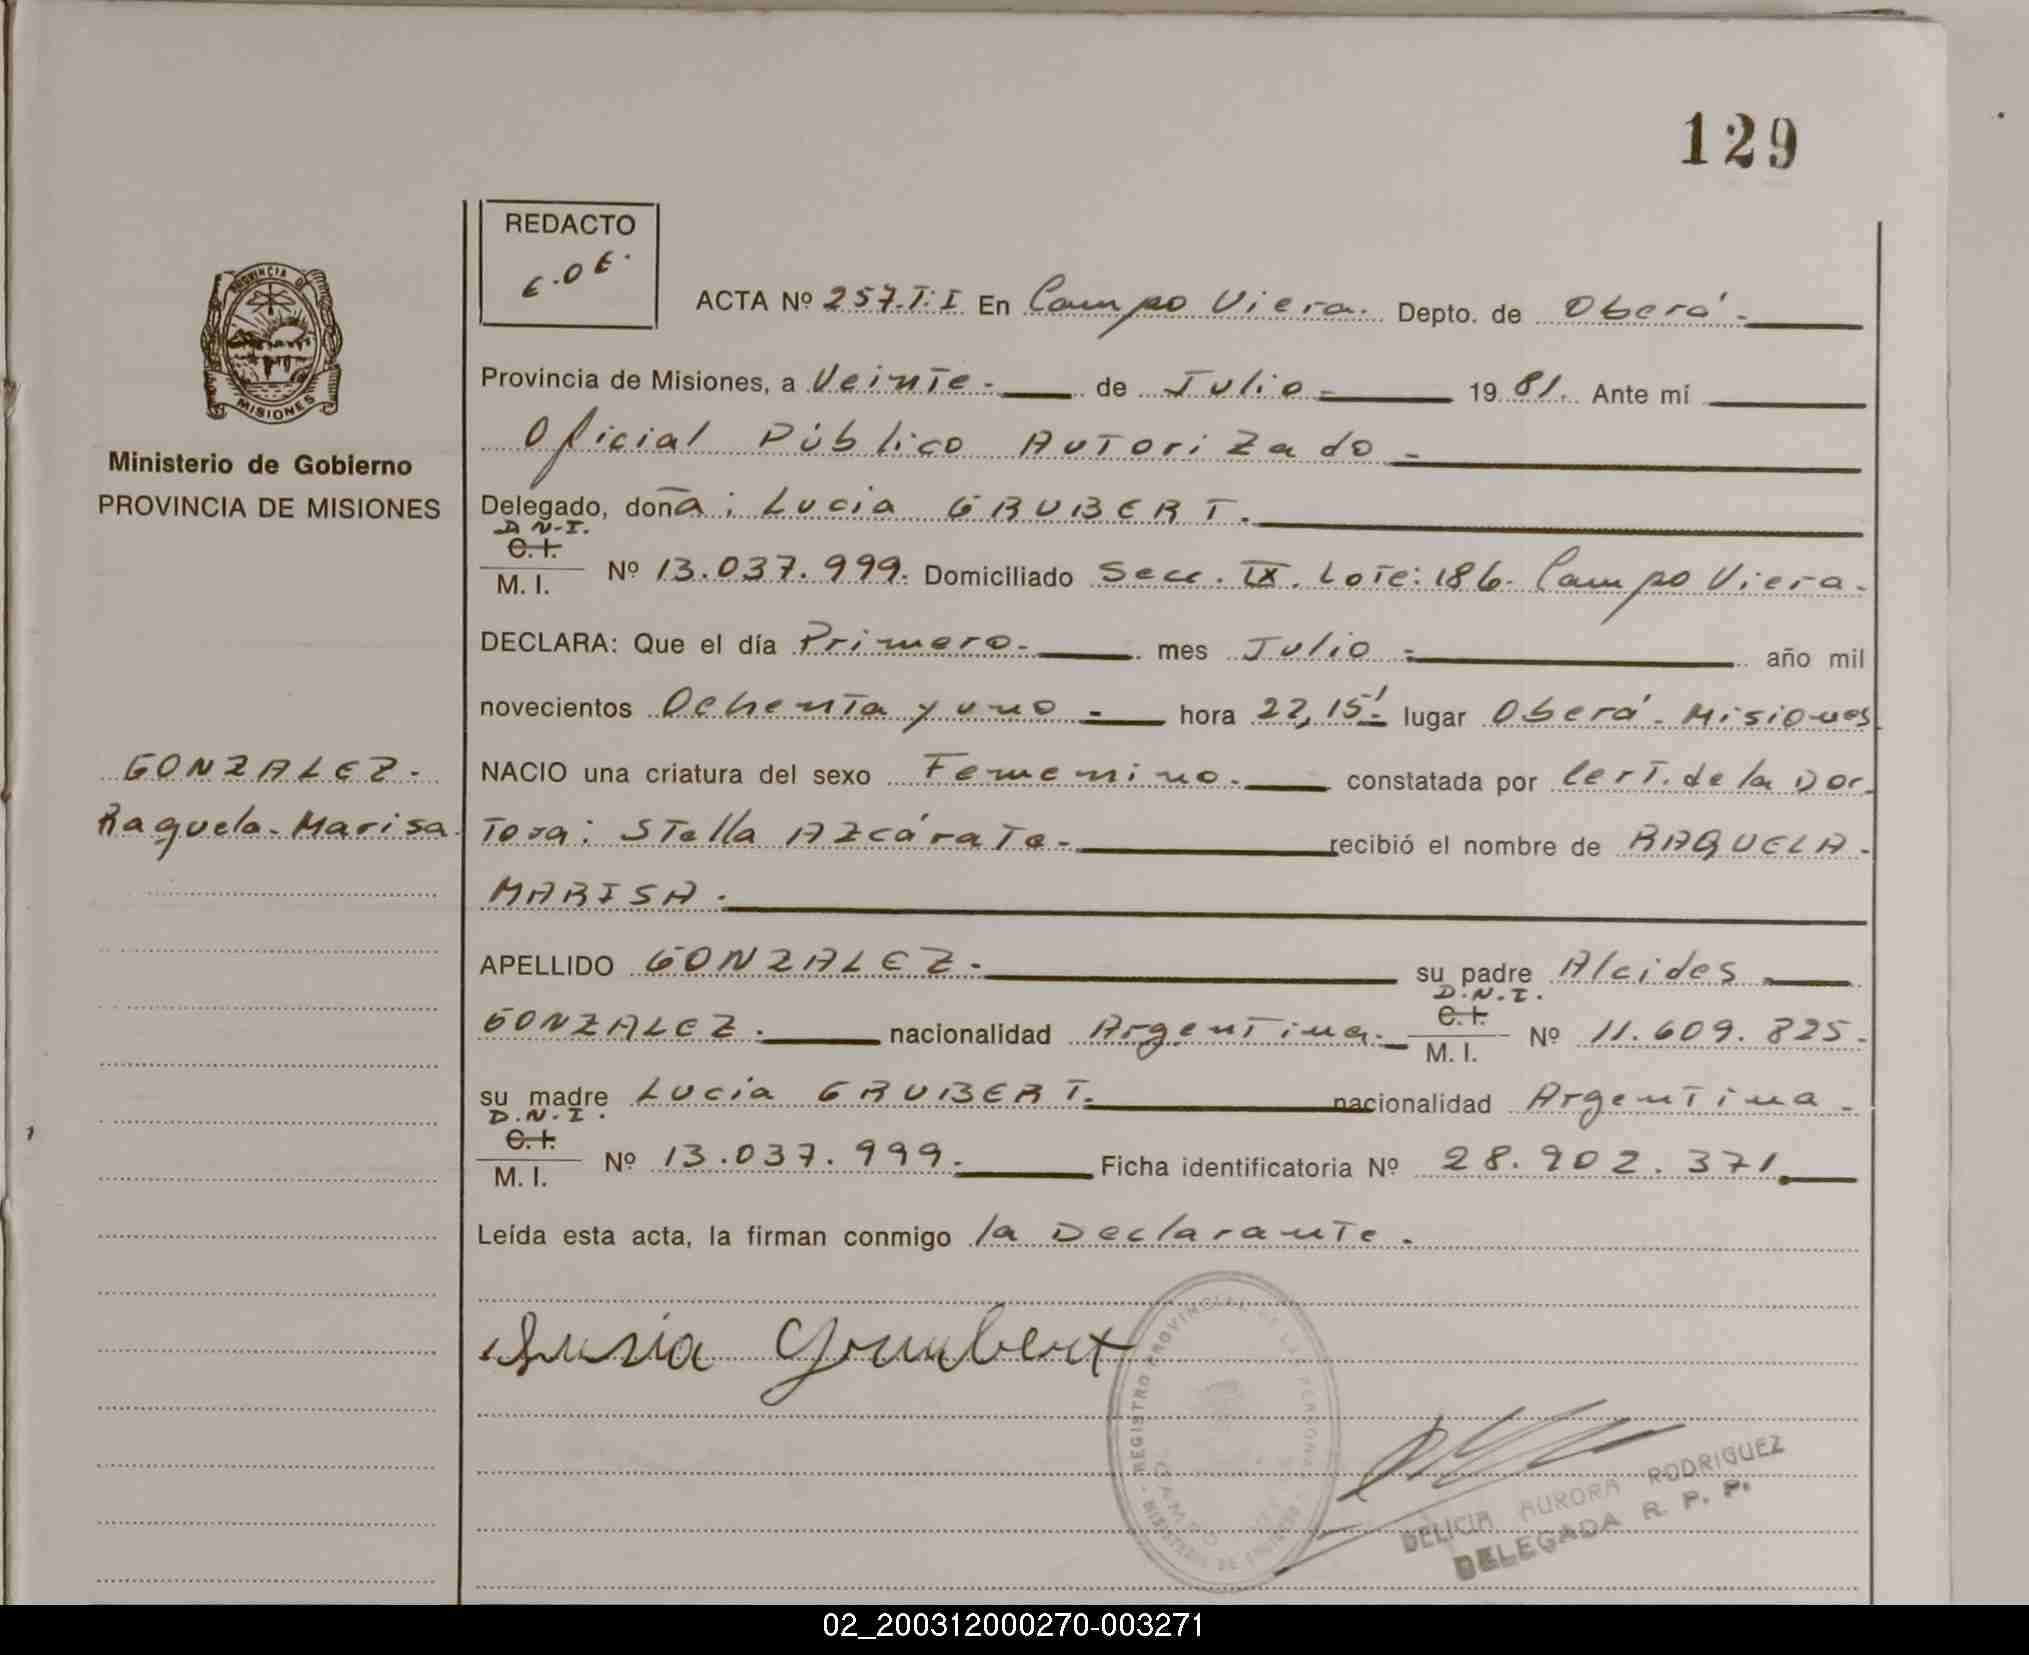 129
REDACTO
E.O.E.
ACTA Nº 257.T.I En Campo Viera. Depto. de Oberá.
Provincia de Misiones, a Veinte. de Julio. 1981. Ante mí
Oficial Público Autorizado
Delegado, doña: Lucia GRUBERT.
D.N.I.
C.I.
M. I. Nº 13.037.999. Domiciliado Secc. IX. Lote: 186. Campo Viera.
DECLARA: Que el día Primero. mes Julio año mil
novecientos Ochenta y uno hora 22,15' lugar Oberá. Misiones
NACIO una criatura del sexo Femenino. constatada por Cert. de la Doc
tora: Stella Azcárate. recibió el nombre de RAQUELA
MARISA.
APELLIDO GONZALEZ. su padre Alcides
D.N.I.
C.I.
GONZALEZ. nacionalidad Argentina. M. I. Nº 11.609.825.
su madre Lucia GRUBERT. nacionalidad Argentina
D.N.I.
C.I.
M. I. Nº 13.037.999. Ficha identificatoria Nº 28.902.371.
Leída esta acta, la firman conmigo la Declarante.
Lusia Grubert
PROVINCIA DE
MISIONES
Ministerio de Gobierno
PROVINCIA DE MISIONES
GONZALEZ.
Raquela. Marisa.
REGISTRO PROVINCIAL DE LAS PERSONAS
CAMPO
MINISTERIO DE GOBIERNO
DELICIA AURORA RODRIGUEZ
DELEGADA R. P. P.
02_200312000270-003271